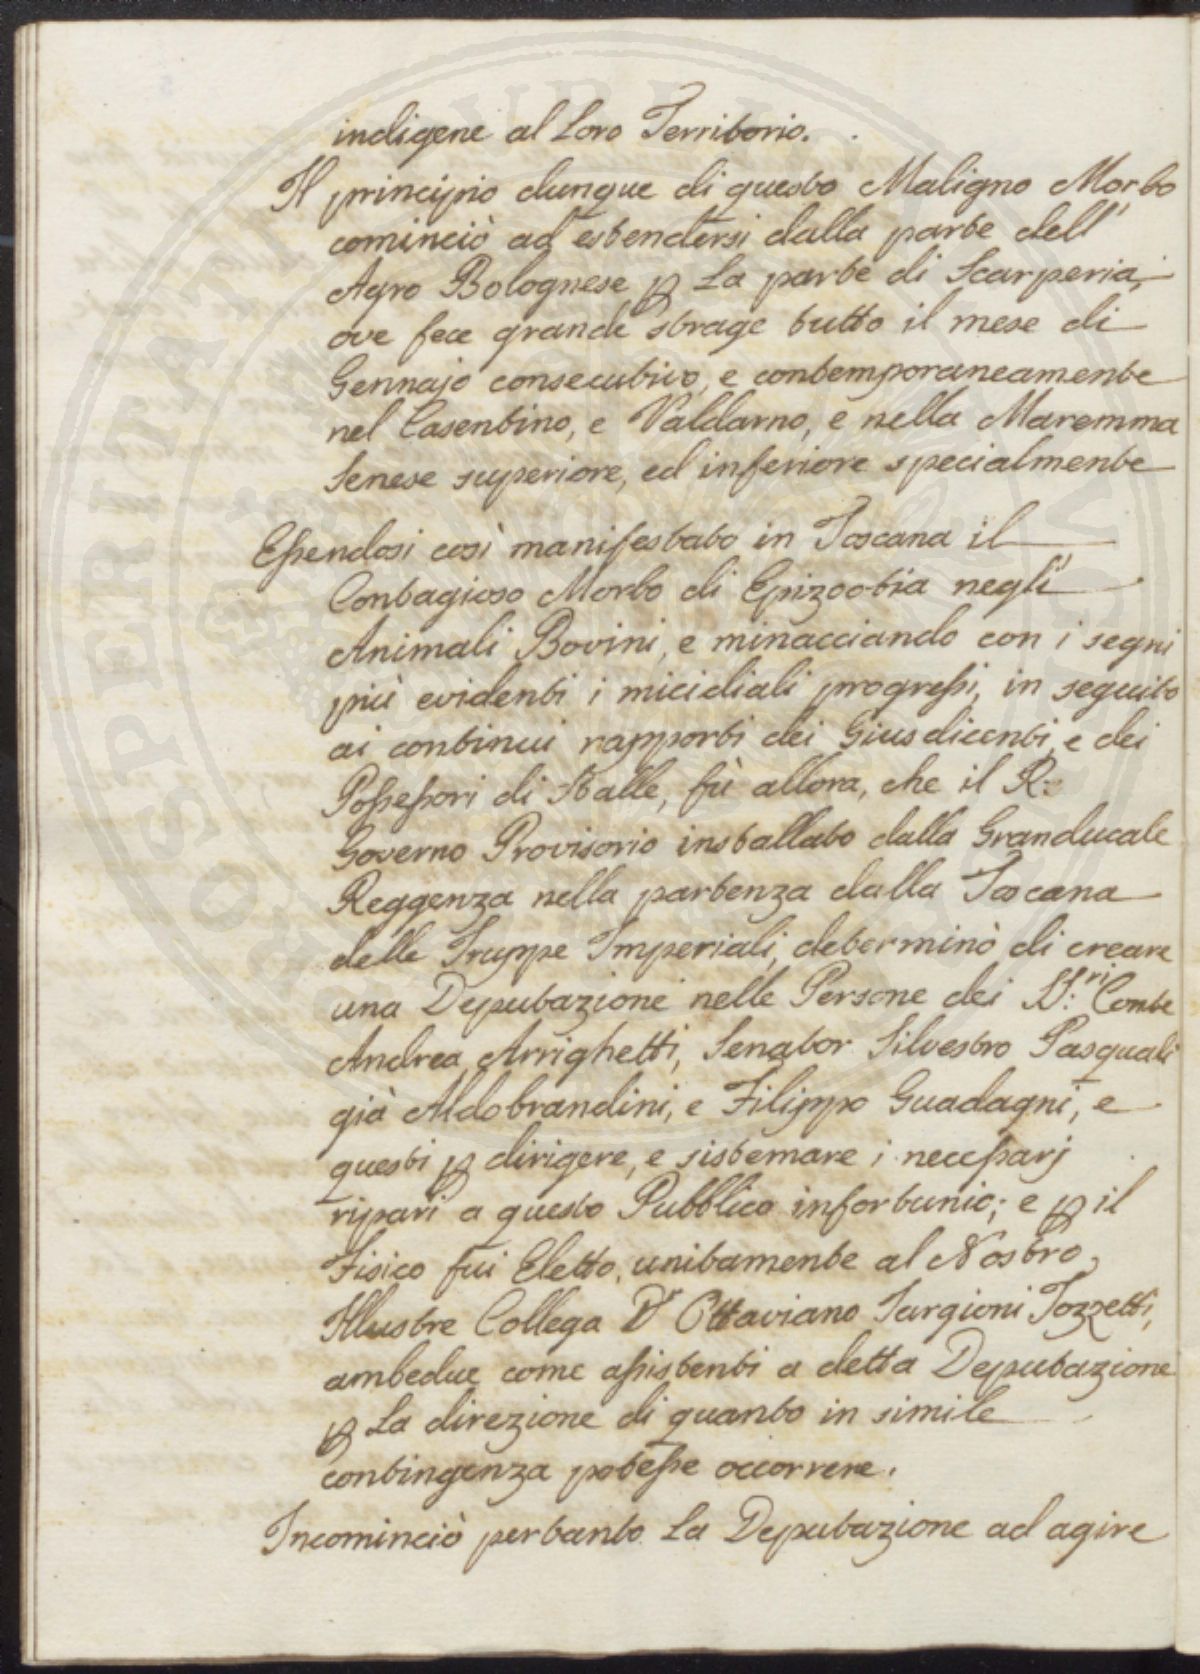 indigene al Loro Territorio.
Il principio dunque di questo Maligno Morbo
cominciò ad estendersi dalla parte dell'
Agro Bolognese ꝑ La parte di Scarperia,
ove fece grande strage tutto il mese di
Gennajo consecutivo, e contemporaneamente
nel Casentino, e Valdarno, e nella Maremma
Senese superiore, ed inferiore specialmente
Eſsendosi così manifestato in Toscana il
Contagioso Morbo di Epizootia negli
Animali Bovini, e minacciando con i segni
più evidenti i micidiali progreſsi, in seguito
ai continui rapporti dei Giusdicenti, e dei
Poſseſsori di Stalle, fù allora, che il R:
Governo Provisorio installato dalla Granducale
Reggenza nella partenza dalla Toscana
delle Truppe Imperiali, determinò di creare
una Deputazione nelle Persone dei SS:ri Conte
Andrea Arrighetti, Senator Silvestro Pasquali
già Aldobrandini, e Filippo Guadagni, e
questi ꝑ dirigere, e sistemare i neceſsarj
ripari a questo Pubblico infortunio; e ꝑ il
Fisico fui Eletto, unitamente al Nostro
Illustre Collega Dr Ottaviano Targioni Tozzetti,
ambedue come aſsistenti a detta Deputazione
ꝑ La direzione di quanto in simile
contingenza poteſse occorrere.
Incominciò pertanto La Deputazione ad agire
PROSPERITATI PUBLICAE AUGENDAE